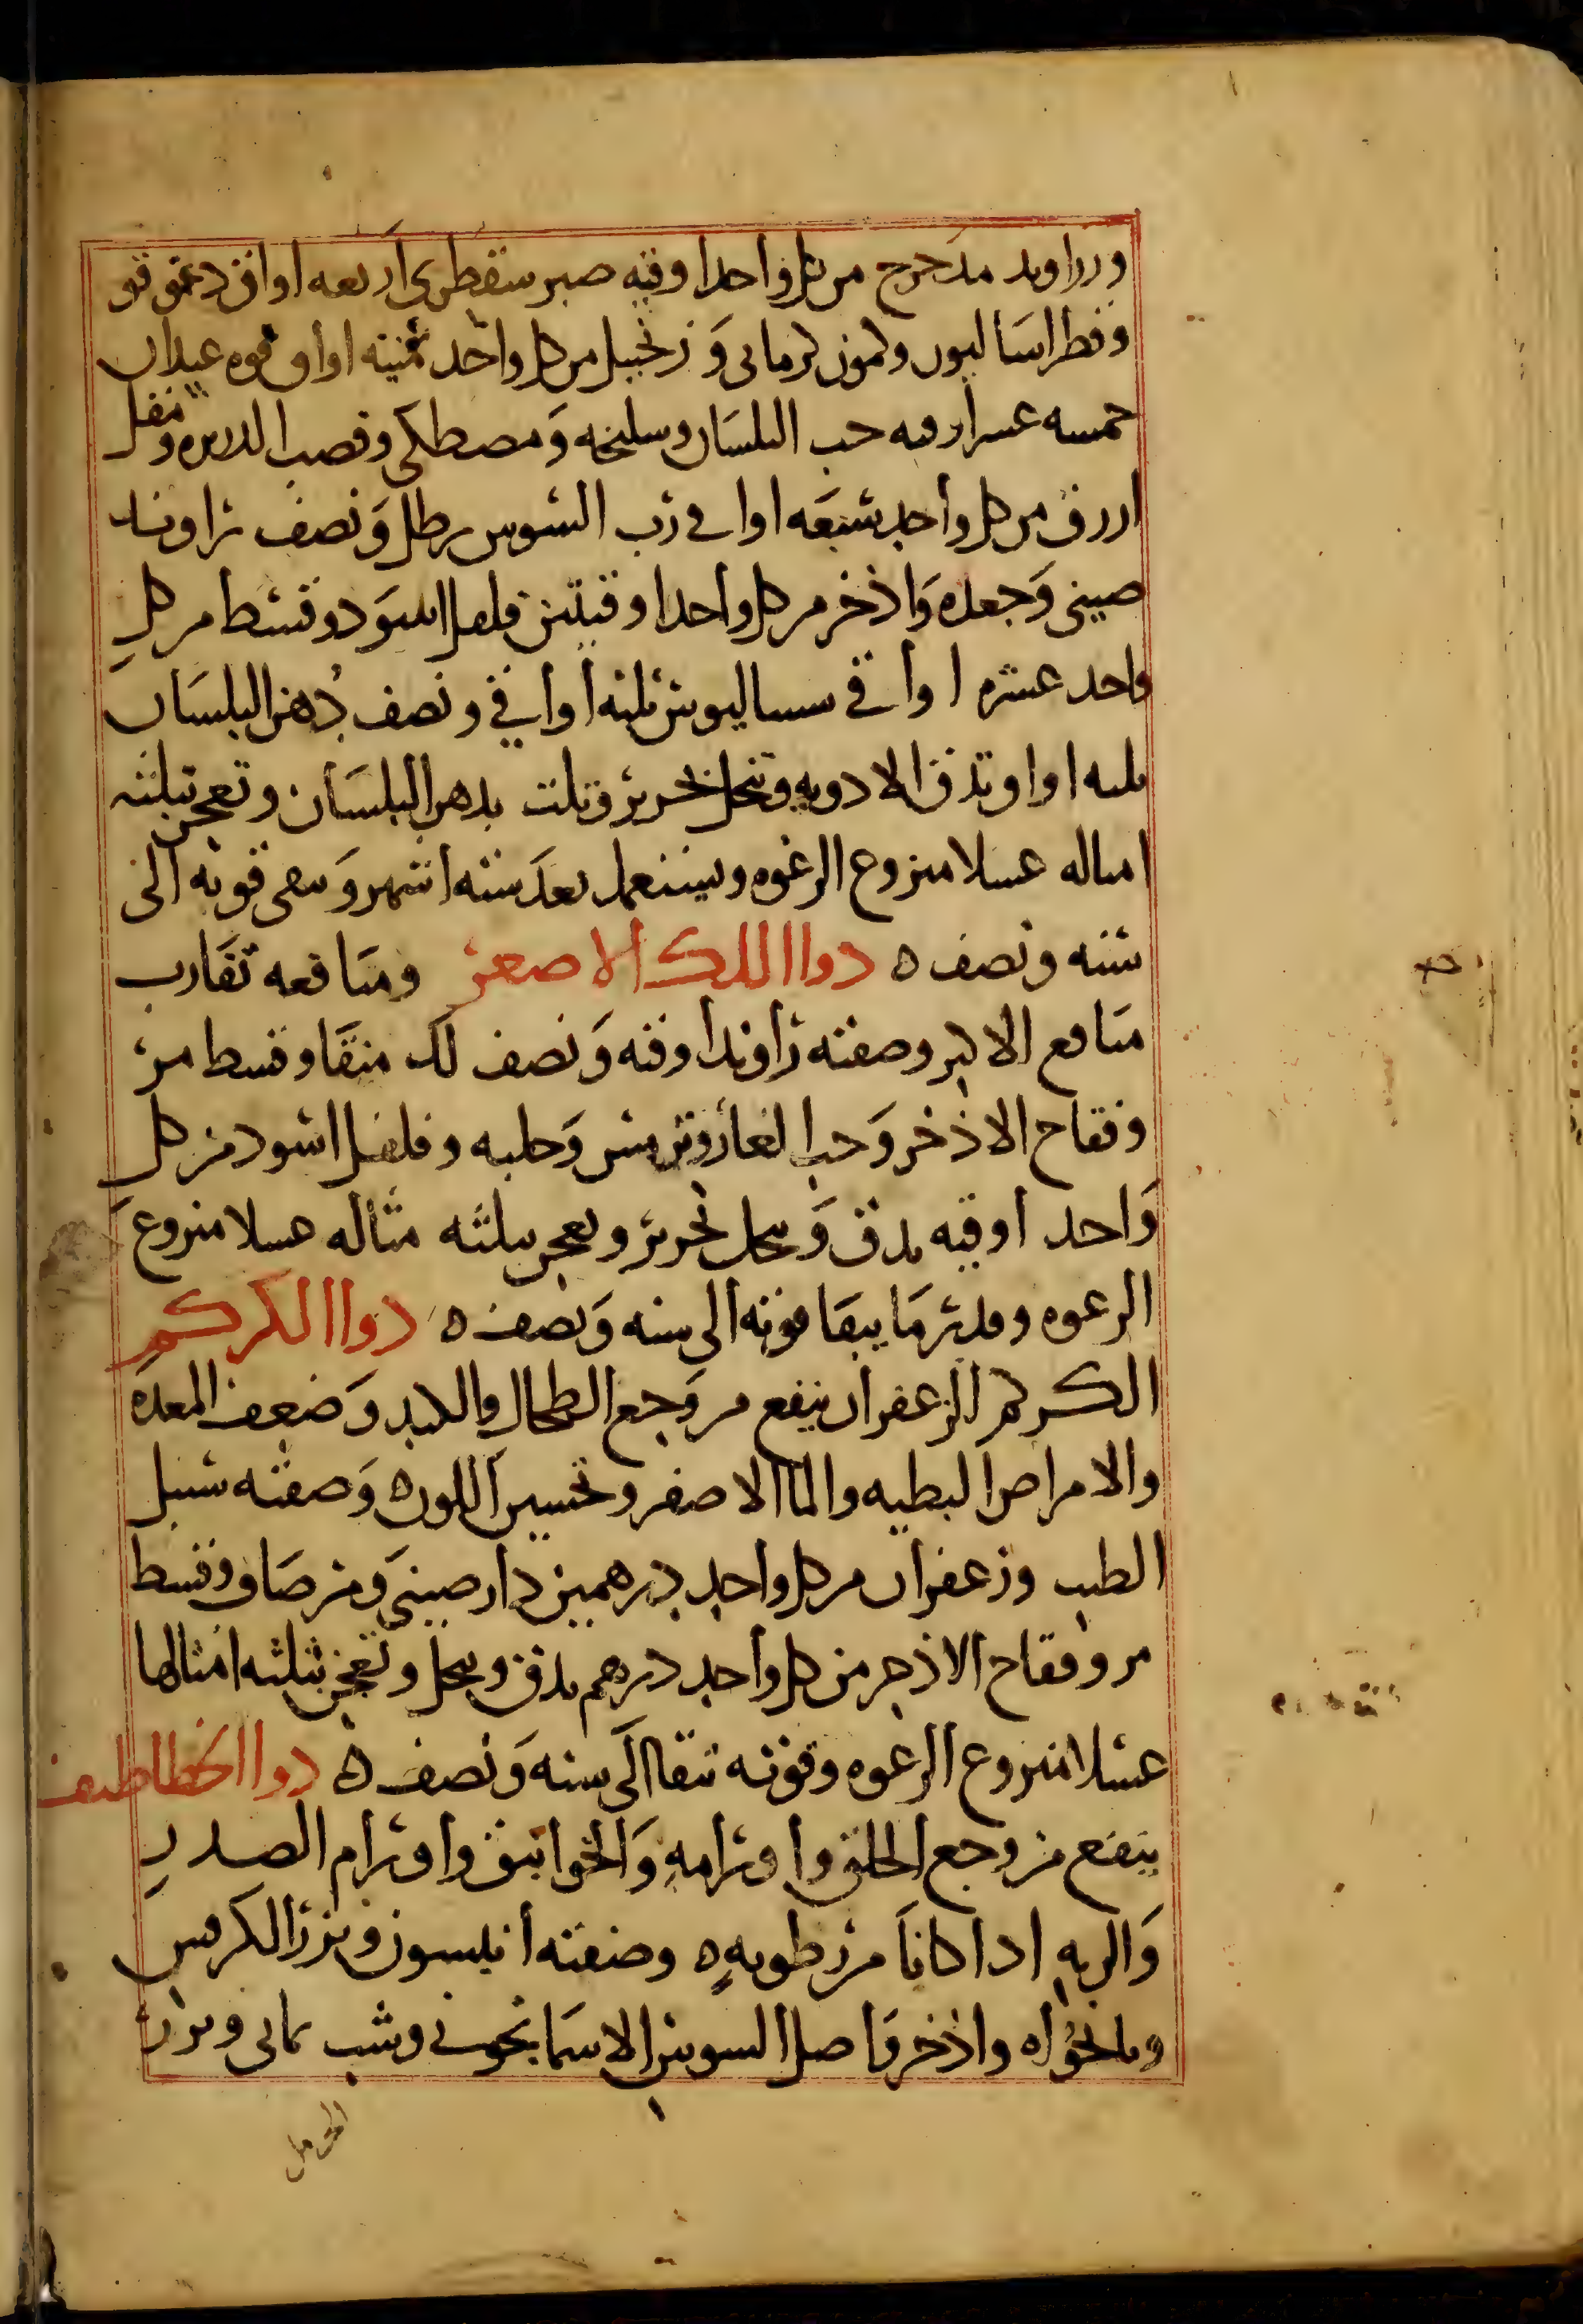 وزراوند مدحرج من كل واحد اوقيه صبر سقطرى اربعه اواق دعوقو
وفطراساليون وكمون كرمانى وَزنجبيل من كل واحد ثمنيه اواق فوه عيدان
خمسه عشر اوقيه حب البلسان وسليخه وَمصطكى وقصب الدريره ومقل
ازرق من كل واحد سَبعَه اواقى رُب السوس رطل وَنصف راوند
صينى وَجعده وَاذخر من كل واحد اوقيتين فلفل اسوَد وقسط من كل
واحد عشره اواقى سساليوس ثلثه اواقى ونصف دُهن البلسَان
ثلثه اواق وتدق الادويه وتنخل بحرير وتلت بدهن البلسَان وتعجن بثلثه
امثاله عسلا منزوع الرغوه ويستعمل بعدَ سته اشهر وَتبقى قوته الى
سنه ونصف ه دوا اللك الاصغر ومنَافعه تقَارب
منَافع الاكبر وصفته راوند اوقيه وَنصف لَك منقَا وقسط مر
وفقاح الاذخر وَحب الغار وترمس وَحلبه وفلفل اسود من كل
وَاحد اوقيه يدق وَينخل بحرير ويعجن بثلثه مثاله عسلا منزوع
الرغوه وقدر مَا يبقَا قوته الى سنه وَنصف ه دوا الكركم
الكركم الزعفران ينفع من وَجع الطحال والكبد وَضعف المعدَه
والامراض البطيه والما الاصفر وتحسين اللون ه وَصفته سنبل
الطيب وزعفران من كل واحد درهمين دارصينى وَمر صَاف وقسط
مر وفقاح الاذخر من كل واحد درهم يدق وينخل وتعجن بثلثه امثالها
عسلا منزوع الرغوه وقوته تبقا الَى سنه وَنصف ه دوا الخطاطيف
ينفع من وجع الحلق واورامهِ وَالخوانيق واورام الصدر
وَالريهِ اذا كانَا من رطوبهٍ ه وصفته انيسون وبزر الكرفس
ونانخواه واذخر وَاصل السوسن الاسمَانجونى وشب يمانى وبزر
الحرمل